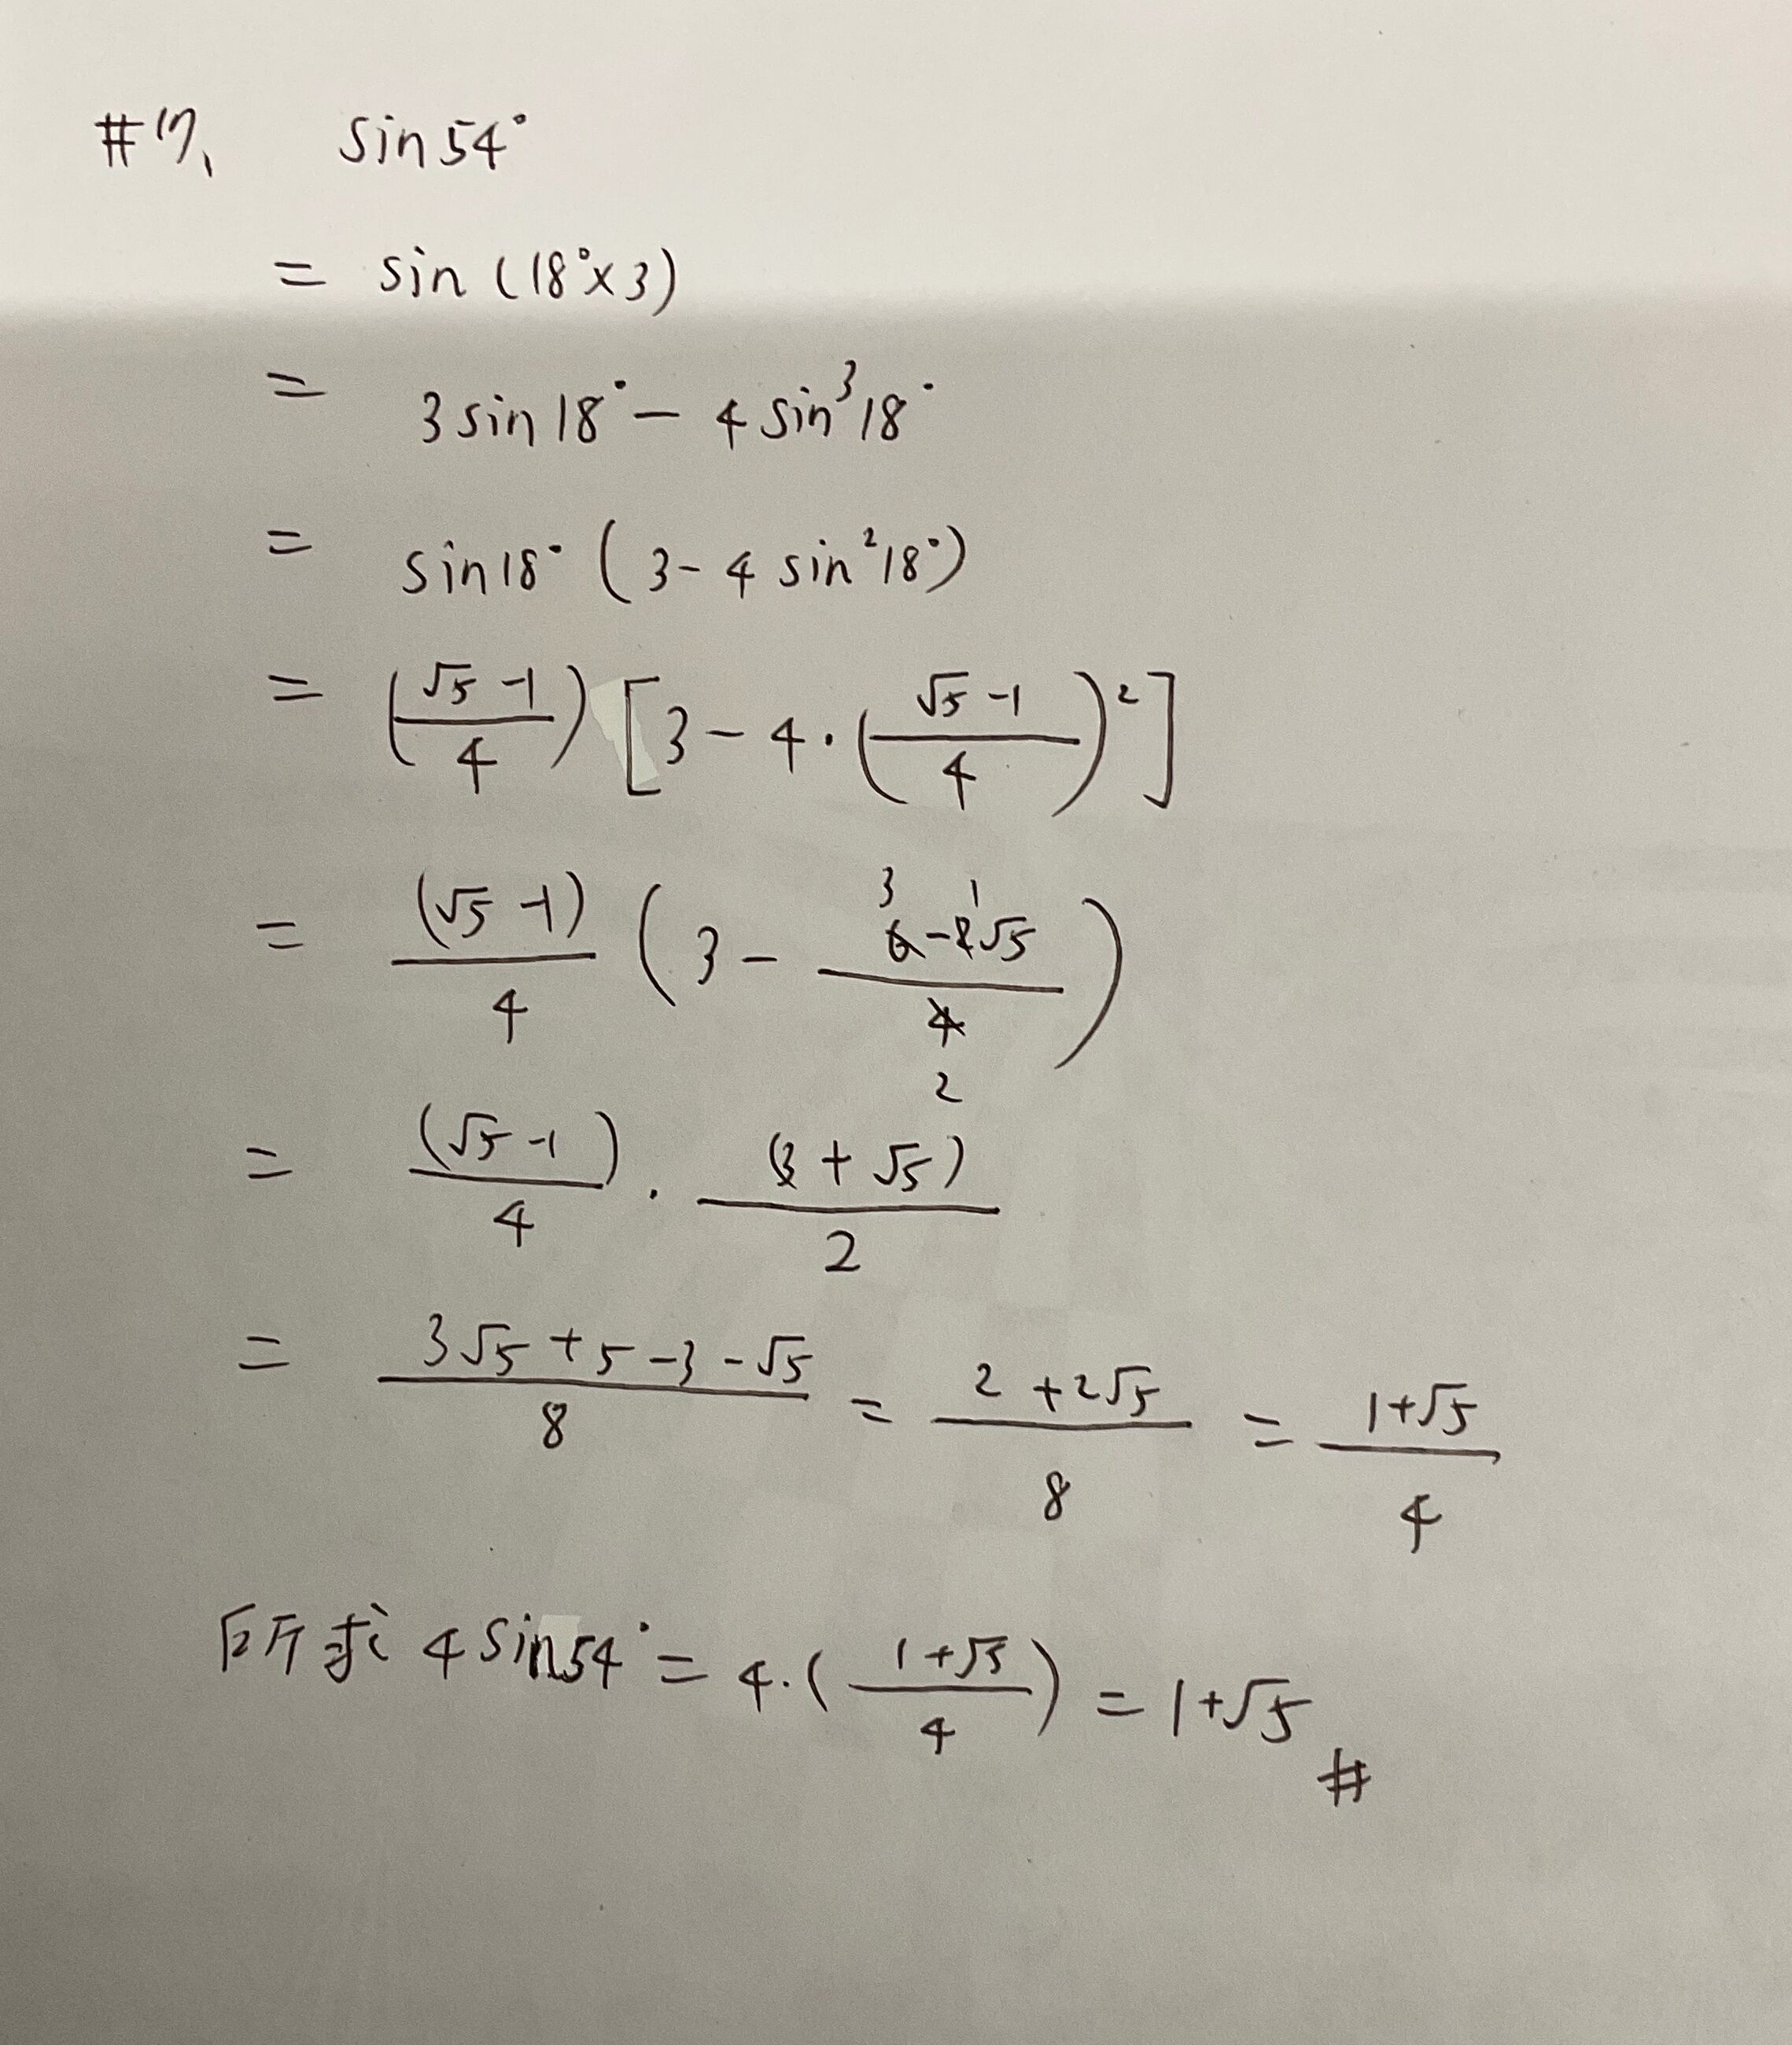 #17、 sin54°
= sin(18°×3)
= 3sin18° - 4sin³18°
= sin18°(3-4sin²18°)
= (√5-1/4)[3-4·(√5-1/4)²]
= (√5-1)/4 (3- 6-2√5/4) 3 1 2
= (√5-1)/4 · (3+√5)/2
= 3√5+5-3-√5/8 = 2+2√5/8 = 1+√5/4
所求 4sin54° = 4·(1+√5/4) = 1+√5 #